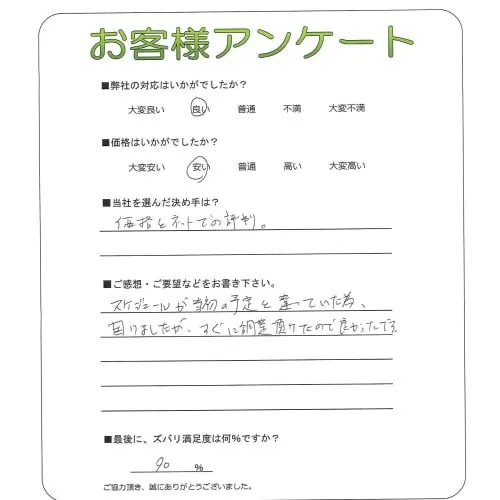 お客様アンケート
■弊社の対応はいかがでしたか？
大変良い 良い 普通 不満 大変不満
■価格はいかがでしたか？
大変安い 安い 普通 高い 大変高い
■当社を選んだ決め手は？
価格とネットでの評判。
■ご感想・ご要望などをお書き下さい。
スケジュールが当初の予定と違っていた為、
困りましたが、すぐに調整頂けたので良かったです
■最後に、ズバリ満足度は何%ですか？
90 %
ご協力頂き、誠にありがとうございました。